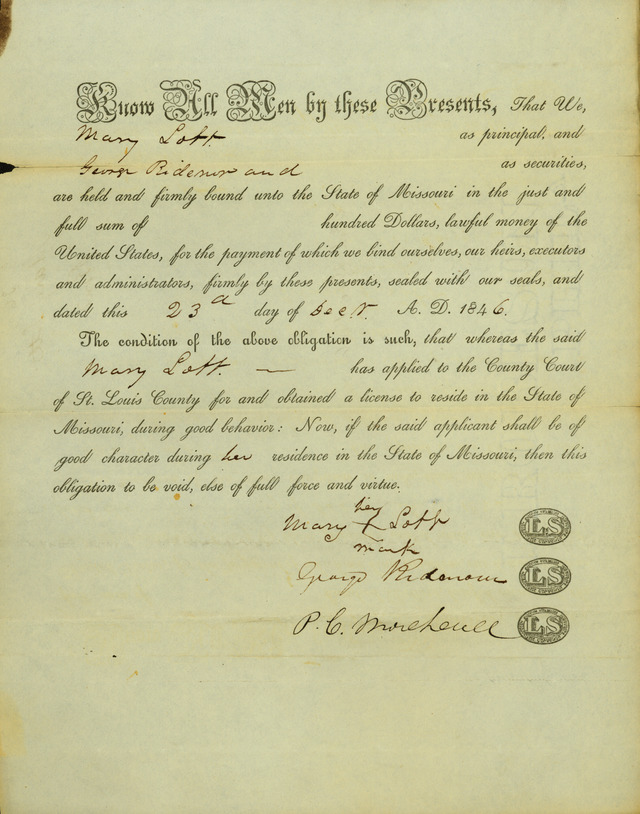 Know All Men by these Presents, That We,
Mary Lott as principal, and
George Ridenour and as securities,
are held and firmly bound unto the State of Missouri in the just and
full sum of hundred Dollars, lawful money of the
United States, for the payment of which we bind ourselves, our heirs, executors
and administrators, firmly by these presents, sealed with our seals, and
dated this 23d day of Decr. A. D. 1846.
The condition of the above obligation is such, that whereas the said
Mary Lott — has applied to the County Court
of St. Louis County for and obtained a license to reside in the State of
Missouri, during good behavior: Now, if the said applicant shall be of
good character during her residence in the State of Missouri, then this
obligation to be void, else of full force and virtue.
her
Mary + Lott LS
mark
George Ridenour LS
P. C. LS